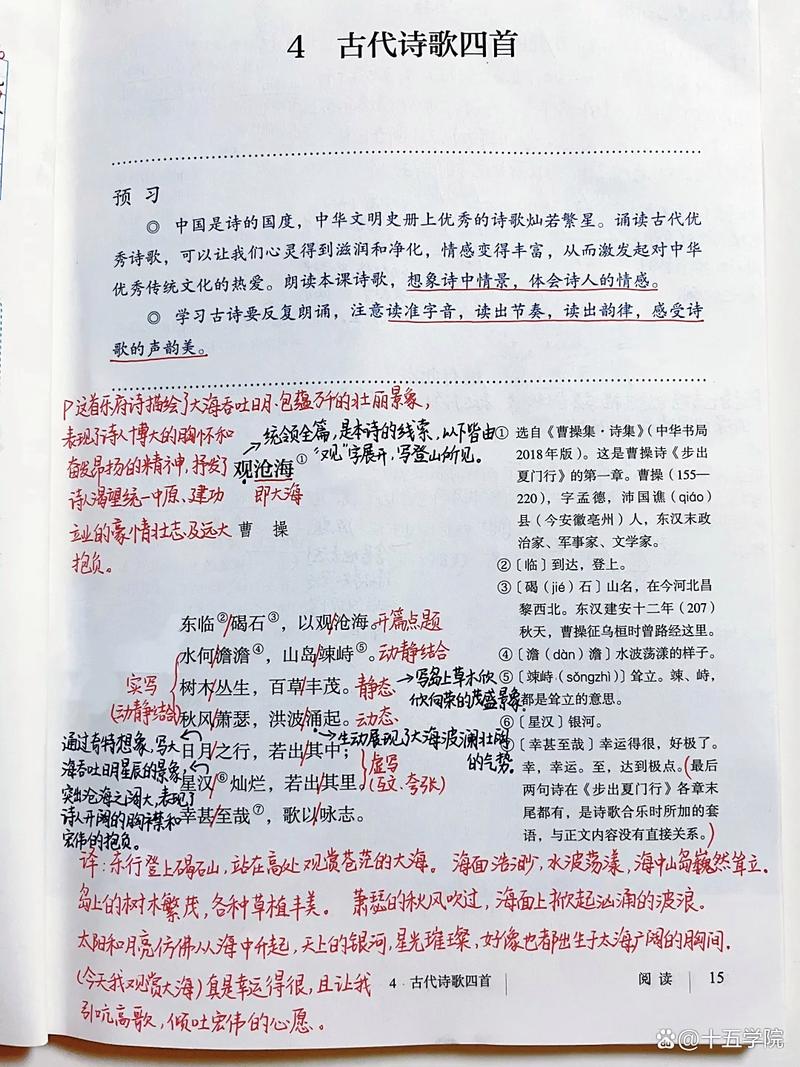 4 古代诗歌四首
预 习
◎ 中国是诗的国度，中华文明史册上优秀的诗歌灿若繁星。诵读古代优
秀诗歌，可以让我们心灵得到滋润和净化，情感变得丰富，从而激发起对中华
优秀传统文化的热爱。朗读本课诗歌，想象诗中情景，体会诗人的情感。
◎ 学习古诗要反复朗诵，注意读准字音，读出节奏，读出韵律，感受诗
歌的声韵美。
这首乐府诗描绘了大海吞吐日月、包蕴万千的壮丽景象，
表现了诗人博大的胸怀和
奋发昂扬的精神，抒发了
诗人渴望统一中原、建功
立业的豪情壮志及远大
抱负。
统领全篇，是本诗的线索，以下皆由
"观"字展开，写登山所见。
观沧海①
即大海
曹 操
东临②/碣石③，以观/沧海。开篇点题
水何/澹澹④，山岛/竦峙⑤。动静结合
树木/丛生，百草/丰茂。静态
秋风/萧瑟，洪波/涌起。动态
日月/之行，若出/其中；
星汉/⑥灿烂，若出/其里。
幸甚/至哉⑦，歌以/咏志。
实写
(动静结合)
写岛上草木欣
欣向荣的茂盛景象
生动展现了大海波澜壮阔
的气势。
虚写
(互文、夸张)
通过奇特想象，写大
海吞吐日月星辰的景象，
突出沧海之阔大，表现了
诗人开阔的胸襟和
宏伟的抱负。
① 选自《曹操集·诗集》（中华书局
2018年版）。这是曹操诗《步出
夏门行》的第一章。曹操（155—
220），字孟德，沛国谯（qiáo）
县（今安徽亳州）人，东汉末政
治家、军事家、文学家。
②〔临〕到达，登上。
③〔碣（jié）石〕山名，在今河北昌
黎西北。东汉建安十二年（207）
秋天，曹操征乌桓时曾路经这里。
④〔澹（dàn）澹〕水波荡漾的样子。
⑤〔竦峙（sǒngzhì）〕耸立。竦、峙，
都是耸立的意思。
⑥〔星汉〕银河。
⑦〔幸甚至哉〕幸运得很，好极了。
幸，幸运。至，达到极点。（最后
两句诗在《步出夏门行》各章末
尾都有，是诗歌合乐时所加的套
语，与正文内容没有直接关系。）
译：东行登上碣石山，站在高处观赏苍茫的大海。 海面浩渺，水波荡漾，海中山岛巍然耸立.
岛上的树木繁茂，各种草植丰美。 萧瑟的秋风吹过，海面上掀起汹涌的波浪。
太阳和月亮仿佛从海中升起，天上的银河，星光璀璨，好像也都出生于大海广阔的胸间.
(今天我观赏大海)真是幸运得很，且让我
引吭高歌，倾吐宏伟的心愿。
4 古代诗歌四首
阅 读 15
Baidu 十五学院